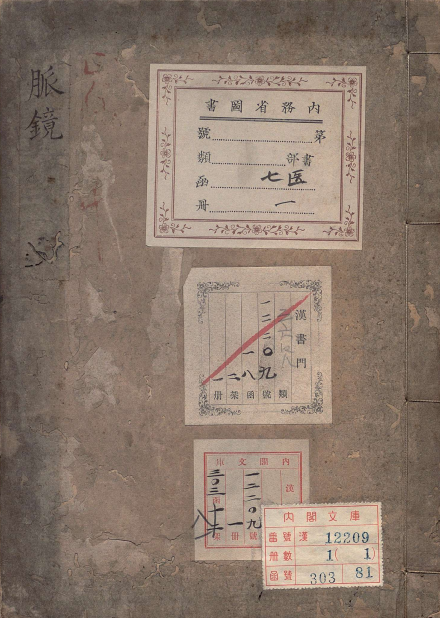 脈鏡
内務省圖書
第 號
書部 類
医七 函
一 冊
漢書門
一二二〇九
一八
二
一
類 號 函 架 冊
内閣文庫
漢
一二二〇九
一
三〇三
號 冊 函
内閣文庫
番號 漢 12209
冊數 1( 1)
函號 303 81